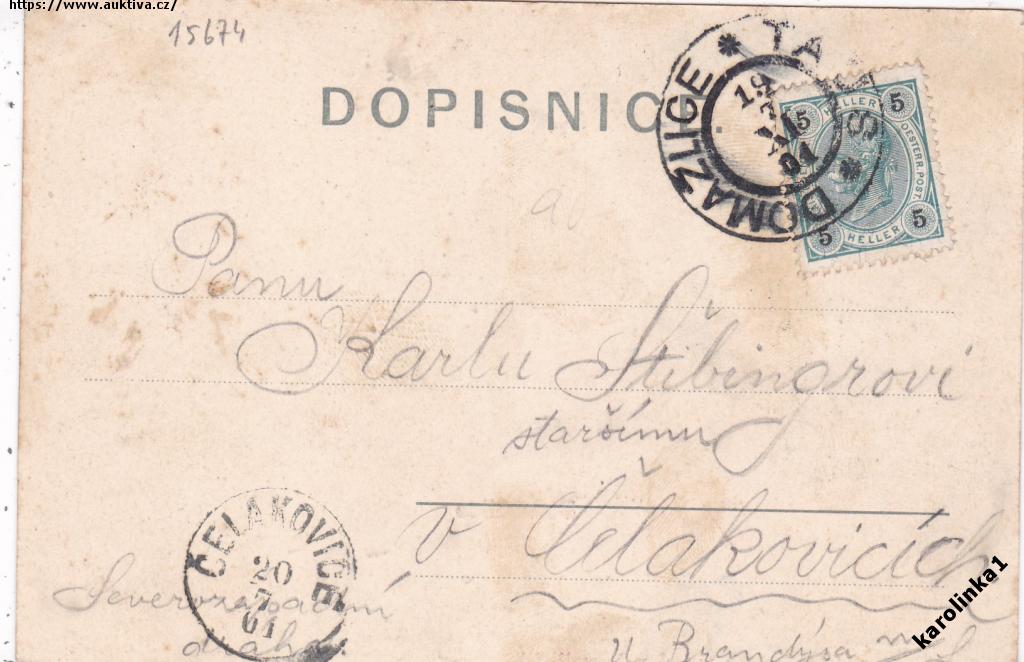 https://www.auktiva.cz/
15674
DOPISNICE.
DOMAŽLICE * TAUS *
19
7
01
5 HELLER 5
OESTERR. POST.
5 HELLER 5
Panu
Karlu Štibingrovi
staršímu
v Čelakovicích
ČELAKOVICE
20
7
01
Severozápadní
dráha
u Brandýsa n/L
karolinka1